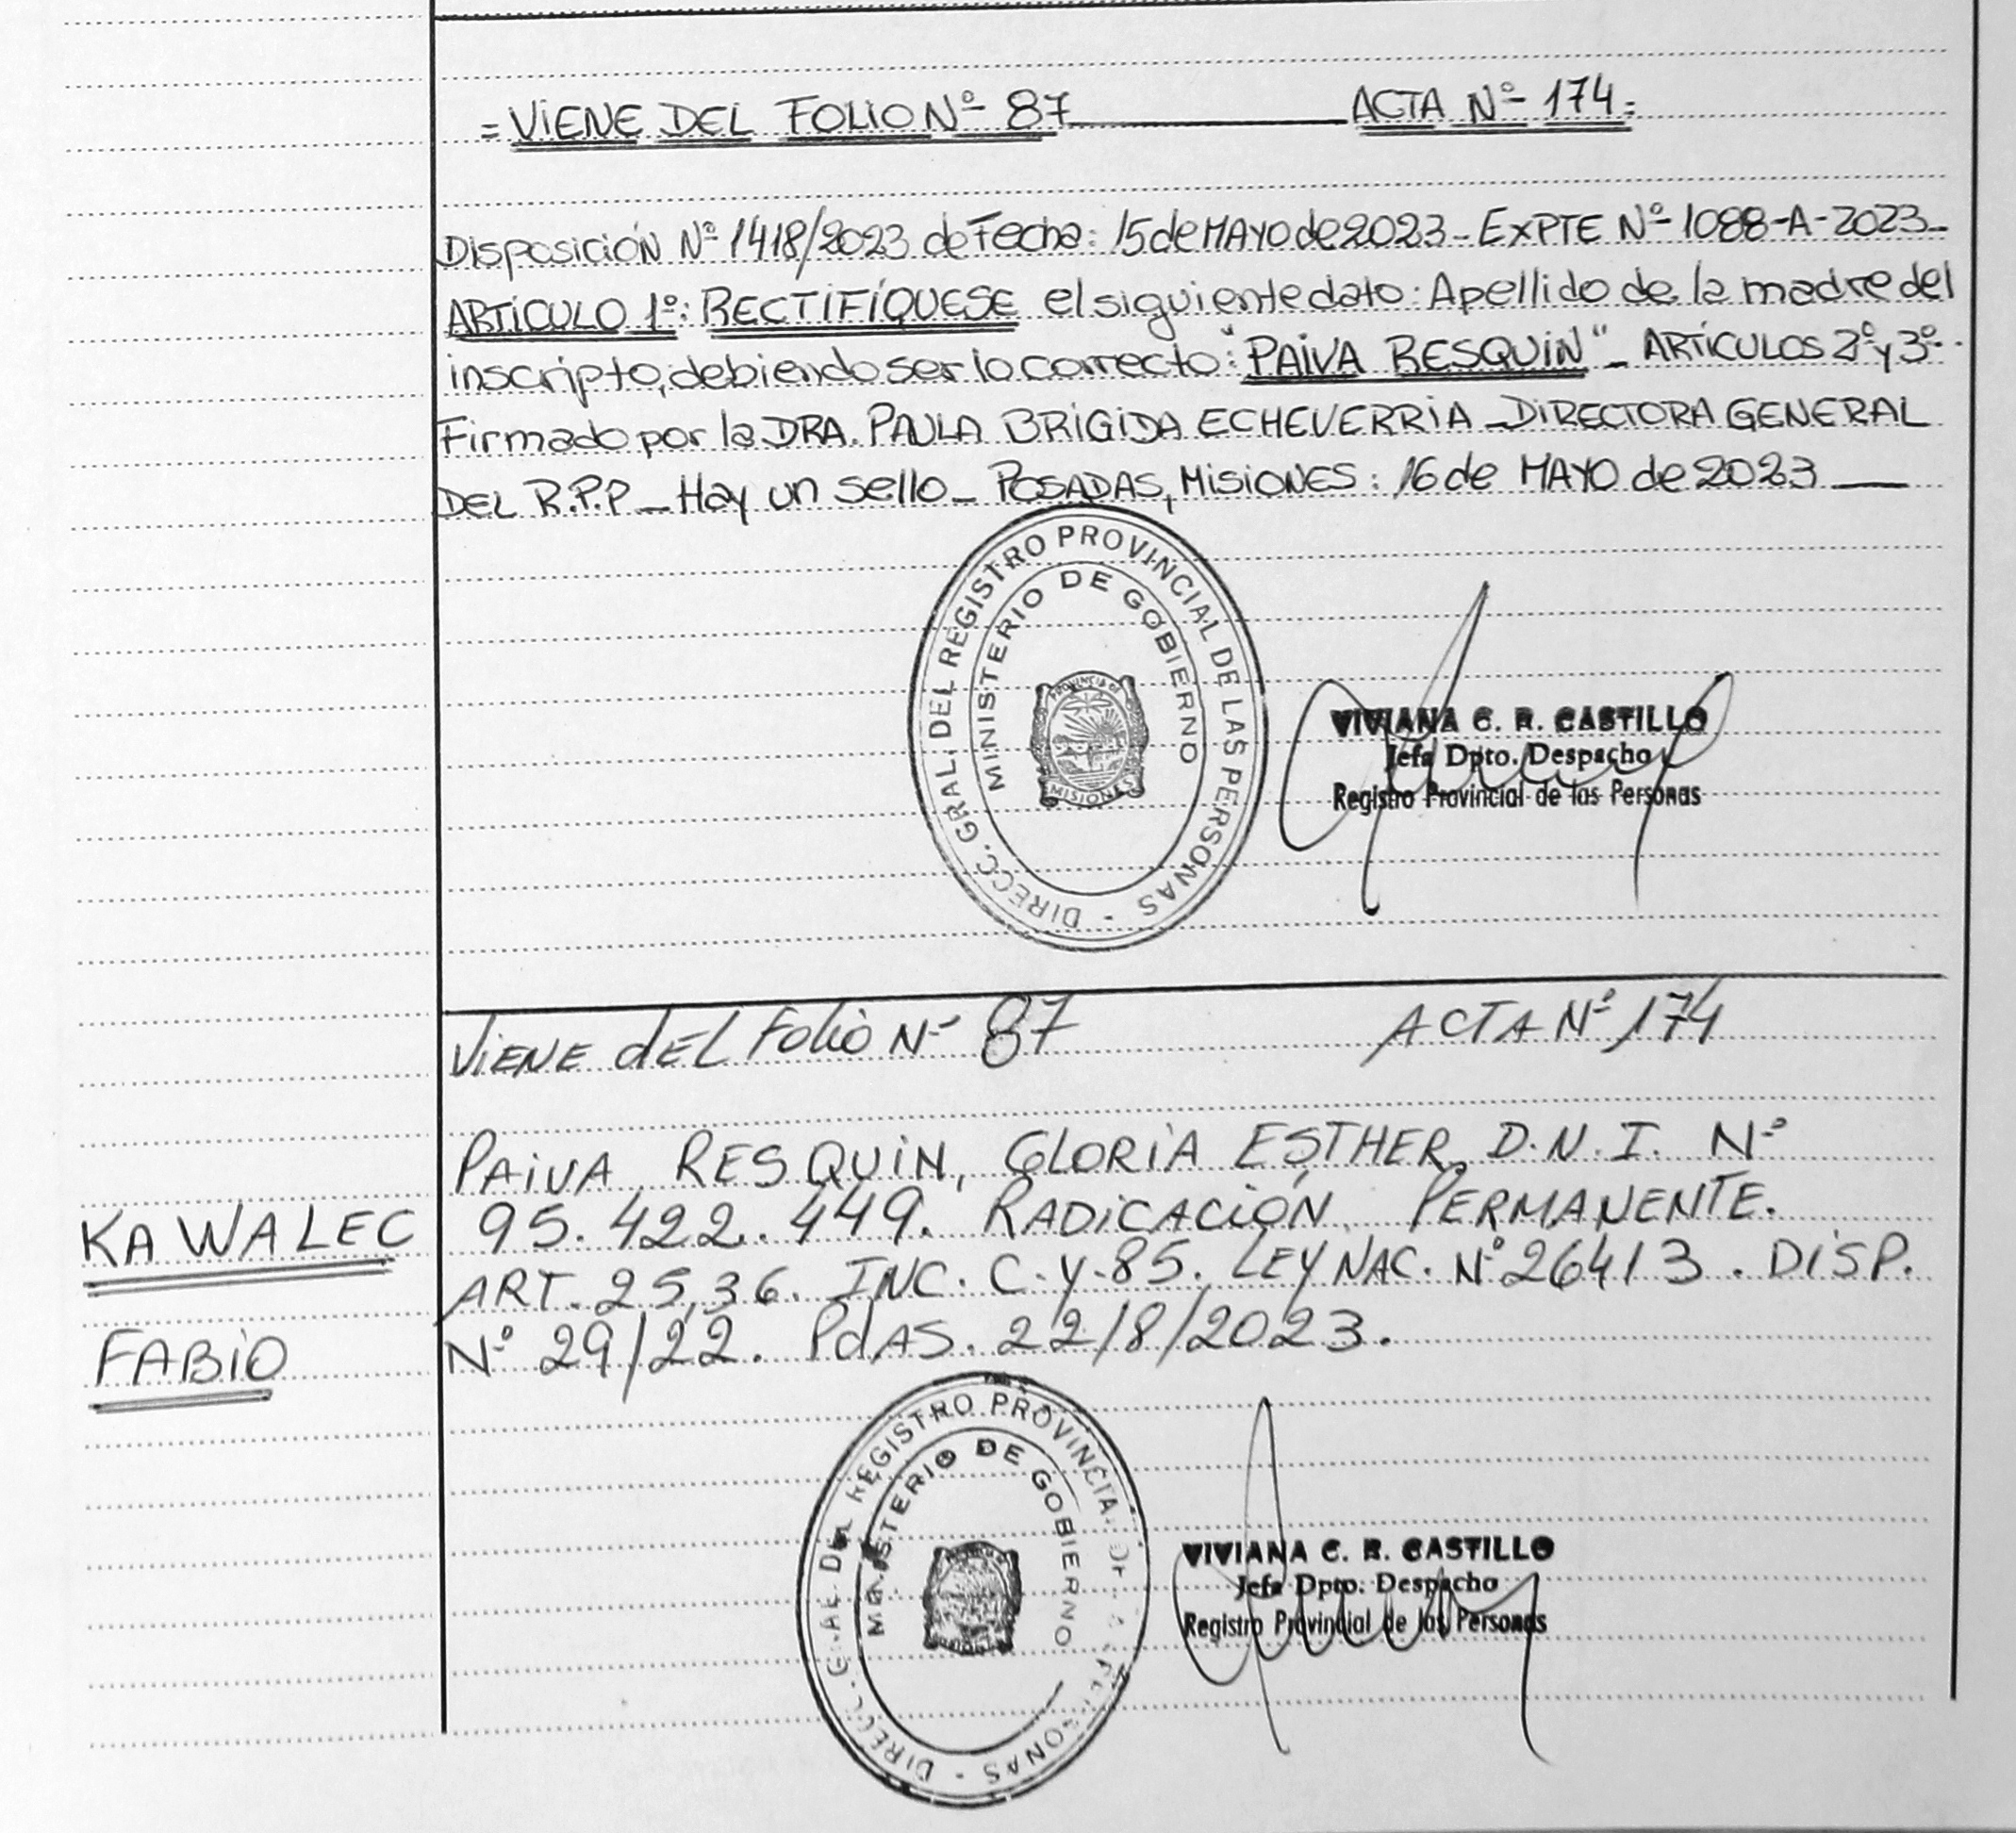 = VIENE DEL FOLIO Nº 87 ACTA Nº 174=
Disposición Nº 1418/2023 de Fecha: 15 de MAYO de 2023 - EXPTE Nº 1088-A-2023-
ARTÍCULO 1º: RECTIFÍQUESE el siguiente dato: Apellido de la madre del
inscripto, debiendo ser lo correcto: "PAIVA RESQUIN" - ARTÍCULOS 2º y 3º-
Firmado por la DRA. PAULA BRIGIDA ECHEVERRIA - DIRECTORA GENERAL
DEL R.P.P - Hay un sello - POSADAS, MISIONES: 16 de MAYO de 2023
DIRECC. GRAL. DEL REGISTRO PROVINCIAL DE LAS PERSONAS -
MINISTERIO DE GOBIERNO
PROVINCIA DE
MISIONES
VIVIANA C. R. CASTILLO
Jefa Dpto. Despacho
Registro Provincial de las Personas
VIENE dEL Folio Nº 87 ACTA Nº 174
PAIVA RESQUIN, GLORIA ESTHER, D.N.I. Nº
95.422.449. RADICACIÓN PERMANENTE.
ART. 25,36. INC. C. y 85. LEY NAC. Nº 26413. DISP.
Nº 29/22. PdAS. 22/8/2023.
KAWALEC
FABIO
DIRECC. GRAL DEL REGISTRO PROVINCIAL DE LAS PERSONAS -
MINISTERIO DE GOBIERNO
VIVIANA C. R. CASTILLO
Jefa Dpto. Despacho
Registro Provincial de las Personas